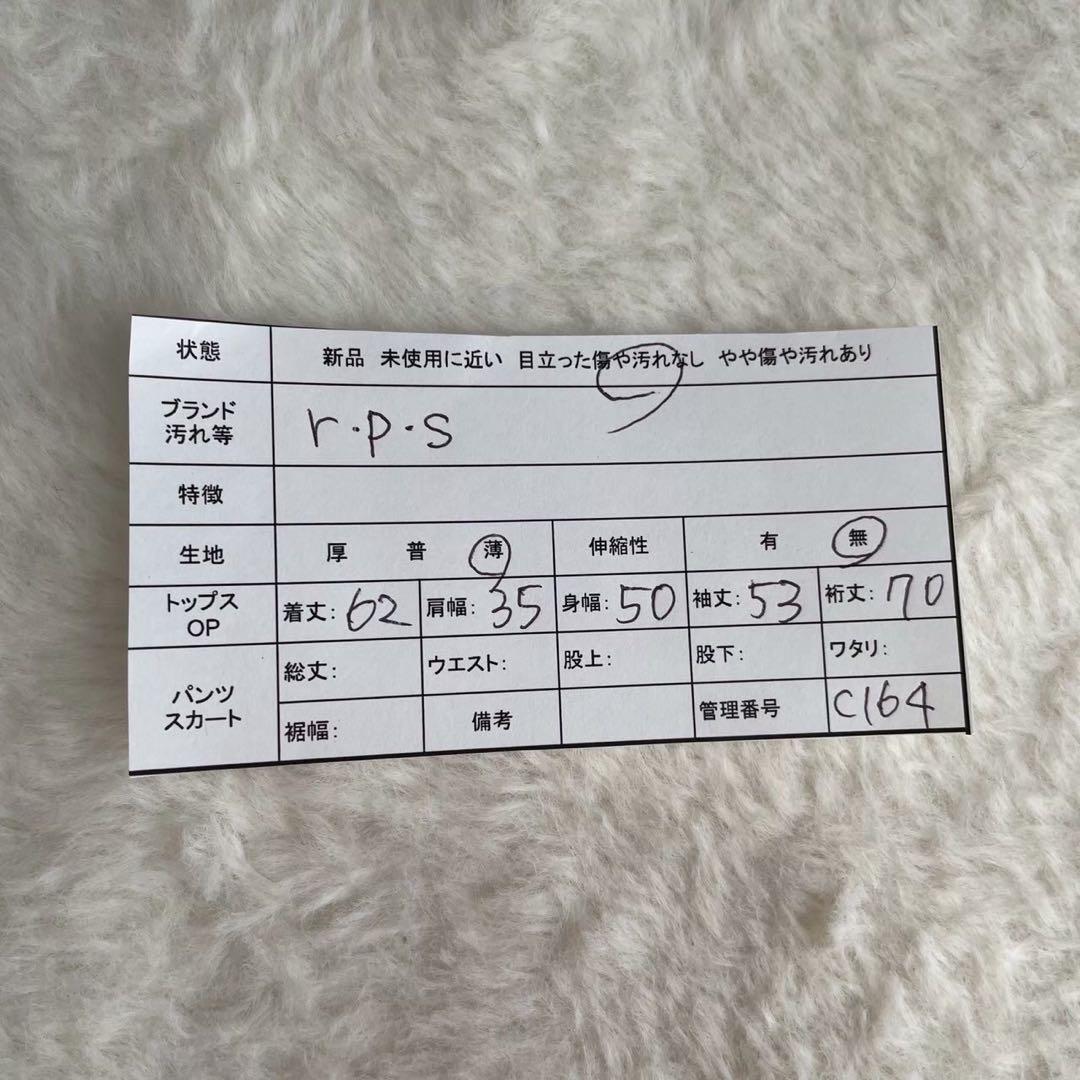 状態 新品 未使用に近い 目立った傷や汚れなし やや傷や汚れあり
ブランド
汚れ等 r・p・s
特徴
生地 厚 普 薄 伸縮性 有 無
トップス
OP 着丈:62 肩幅:35 身幅:50 袖丈:53 裄丈:70
パンツ
スカート
総丈: ウエスト: 股上: 股下: ワタリ:
裾幅: 備考 管理番号 C164